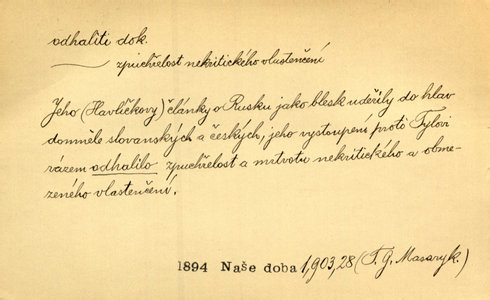 odhaliti dok.
zpuchřelost nekritického vlastenčení
Jeho (Havlíčkovy) články o Rusku jako blesk udeřily do hlav
domněle slovanských a českých, jeho vystoupení proti Tylovi
rázem odhalilo zpuchřelost a mrtvotu nekritického a obme-
zeného vlastenčení.
1894 Naše doba 1,903,28 (T. G. Masaryk.)